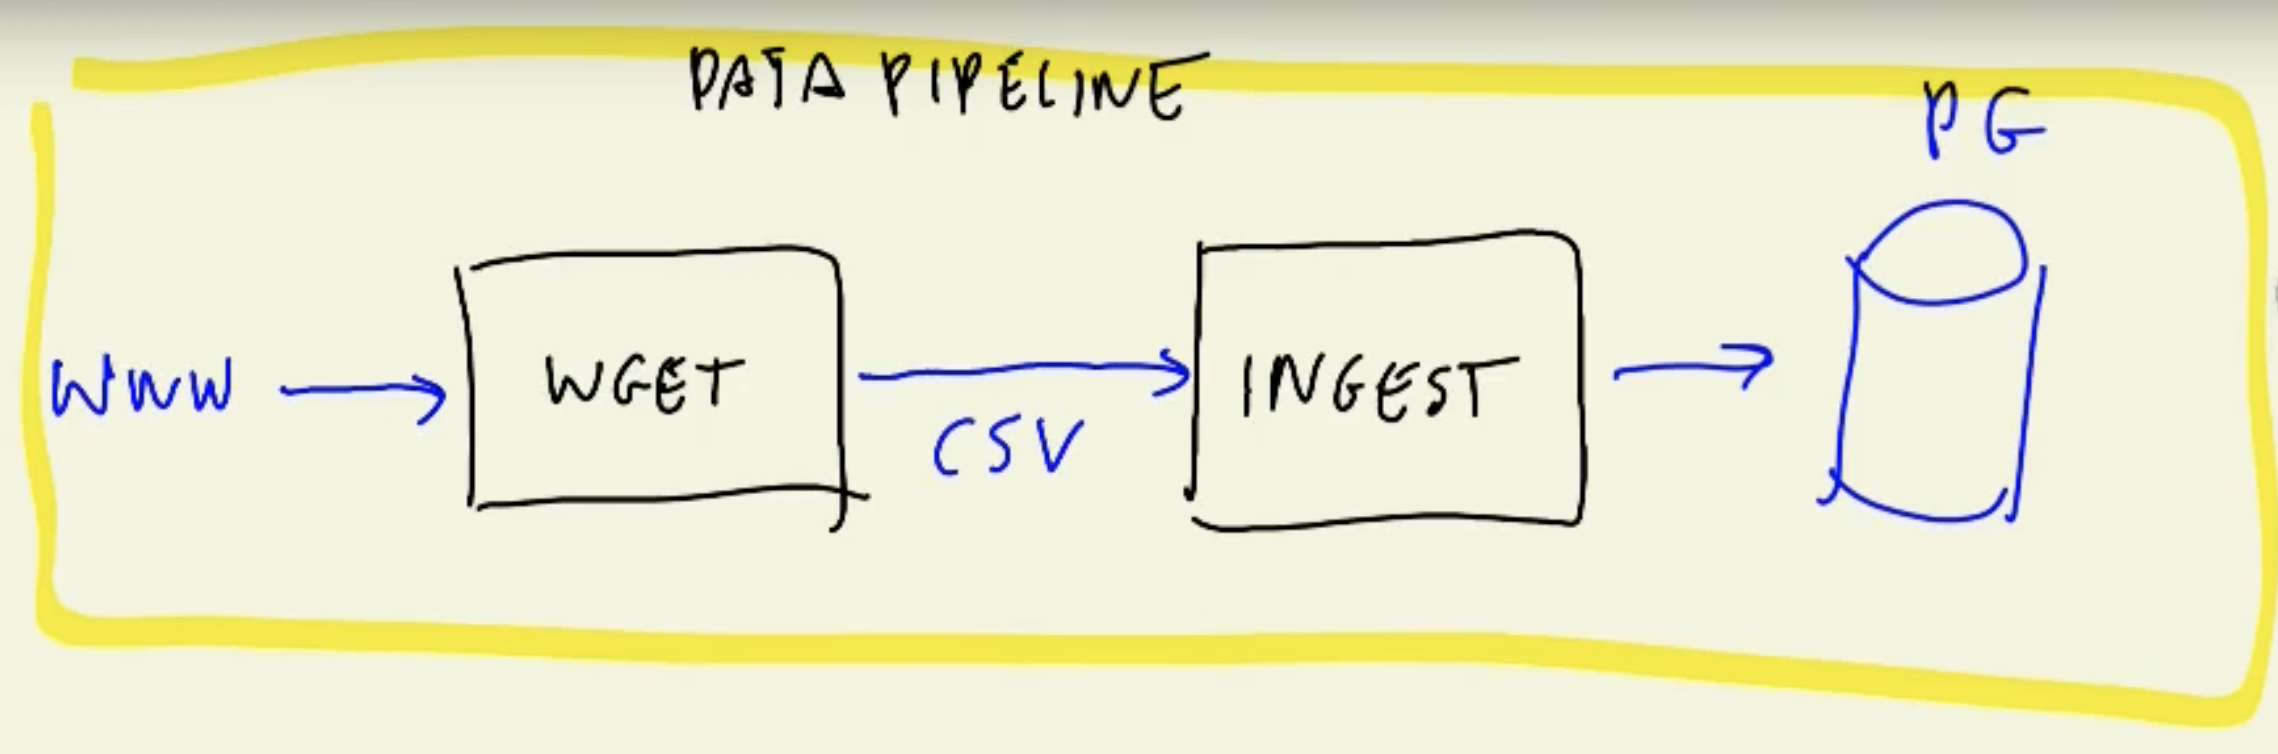 DATA PIPELINE
PG
WWW
WGET
CSV
INGEST